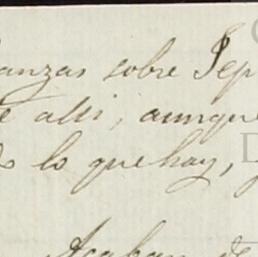 anzas sobre Sep
e alli, aunque
lo que hay,
Acaban de